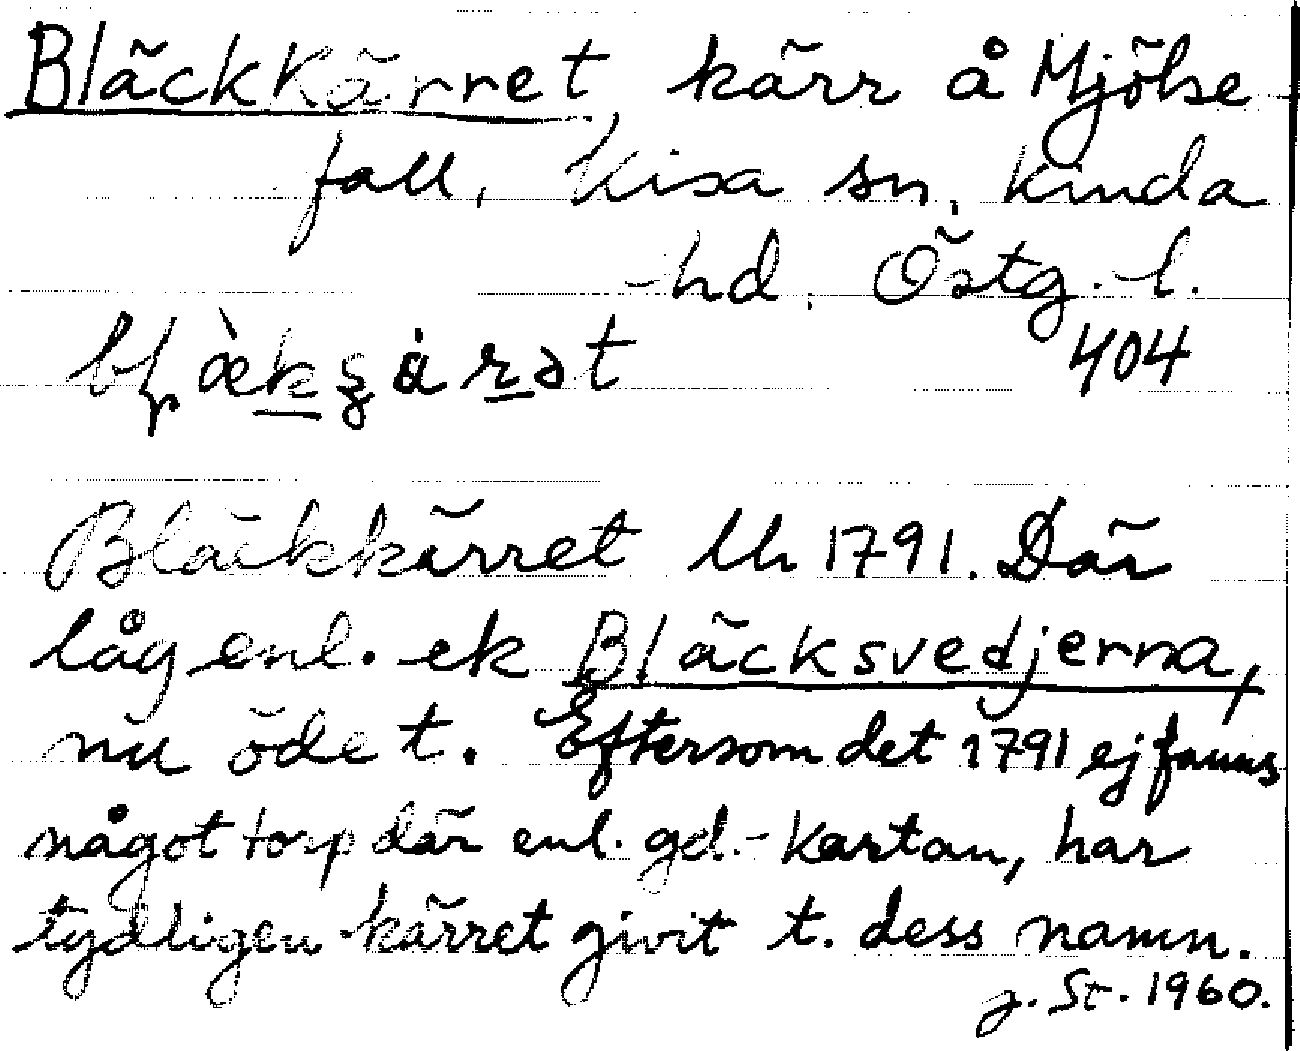 Bläckkärret, kärr å Mjölse
fall, Kisa sn, Kinda
-hd, Östg.-l.
404
Bläckkärret Uh 1791. Där
låg enl. ek Bläcksvedjerna,
nu öde t. Eftersom det 1791 ej fanns
något torp där enl. gd.-kartan, har
tydligen kärret givit t. dess namn.
J. St. 1960.